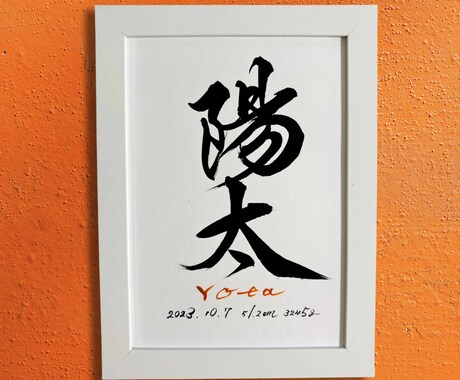 陽太
Yota
2023.10.7 51.2cm 3245g